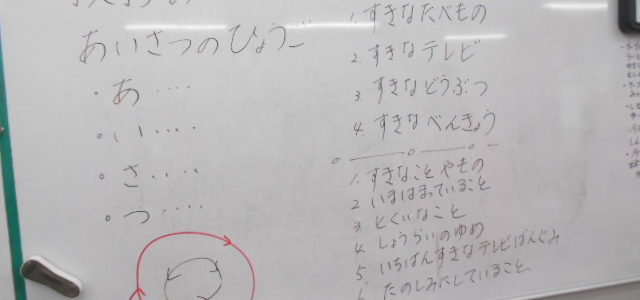 あいさつのひょうご
・あ‥‥
・い‥‥
・さ‥‥
・つ‥‥
1. すきなたべもの
2. すきなテレビ
3. すきなどうぶつ
4. すきなべんきょう
1. すきなことやもの
2 いまはまっていること
3. とくいなこと
4. しょうらいのゆめ
5. いちばんすきなテレビばんぐみ
6. たのしみにしていること